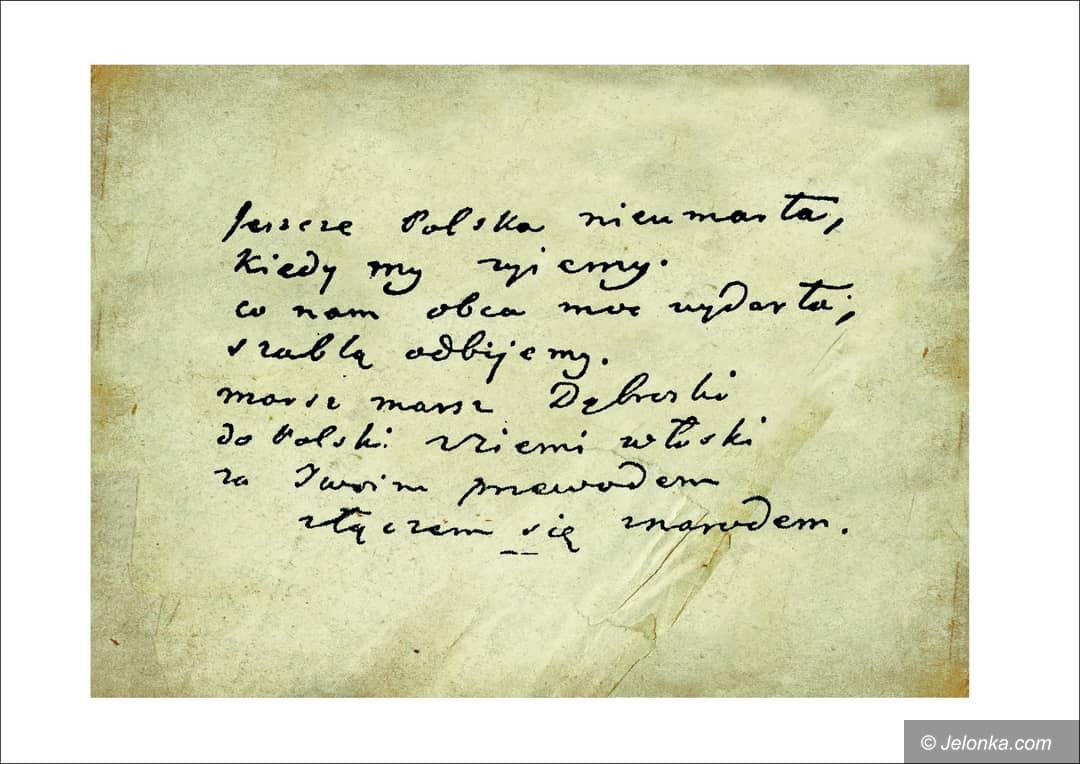 Jeszcze Polska nieumarła,
kiedy my zyjemy.
co nam obca moc wydarła;
szablą odbijemy.
marsz marsz Dąbroski
do Polski zZiemi włoski
za Twoim przewodem
złączem się znarodem.
© Jelonka.com